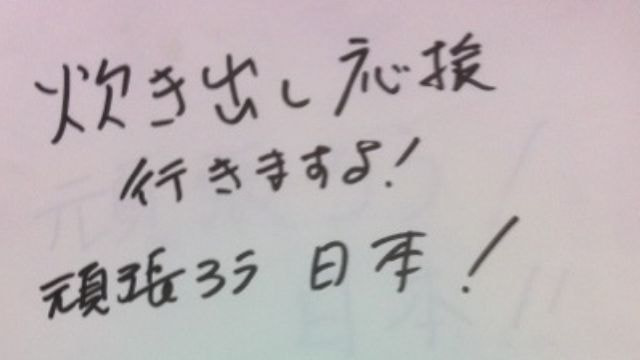 炊き出し応援
行きますよ!
頑張ろう 日本!